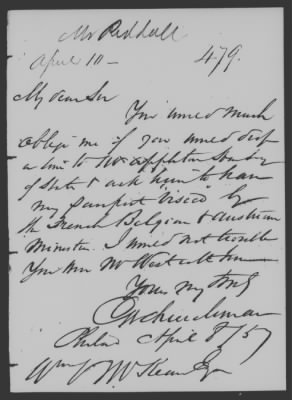 Mr Redhall
April 10 — 479.
My dear Sir
You would much
oblige me if you would drop
a line to Mr Appleton
of State & ask him to have
my passport "viseed" by
the French Belgian & Austrian
Minister. I would not trouble
you
Yours very truly
Philad April 8/57
Wm J McKean Esq